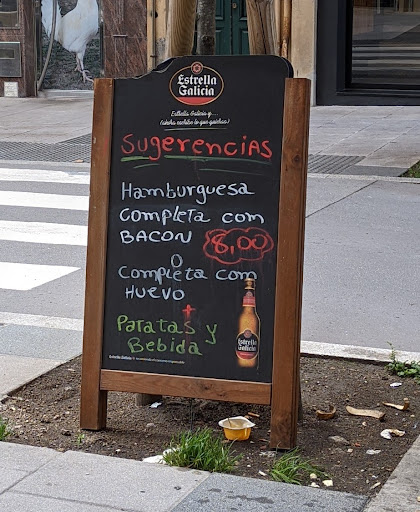 Estrella
Galicia
Estrella Galicia y...
(ahora escribe lo que quieras)
Sugerencias
Hamburguesa
completa com
BACON 8,00
O
Completa com
HUEVO
+
Patatas y
Bebida
Estrella
Galicia
Estrella Galicia